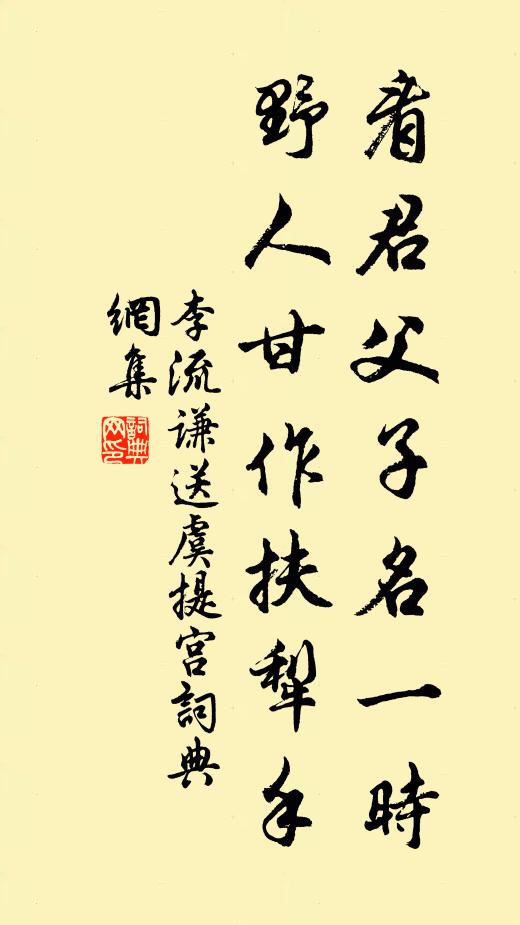 看君父子名一時
野人甘作扶犁手
李流謙送虞提宫詞典
網集
詞典
网印